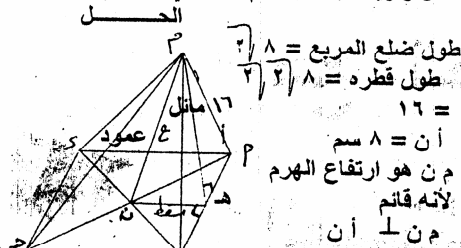 الحـــل
طول ضلع المربع = ٨ √٢
طول قطره = ٨ √٢ √٢
= ١٦
أ ن = ٨ سم
م ن هو ارتفاع الهرم
لأنه قائم
م ن ⊥ أ ن
م
١٦ مائل
ع عمود
أ
هـ
ن
مسقط
جـ